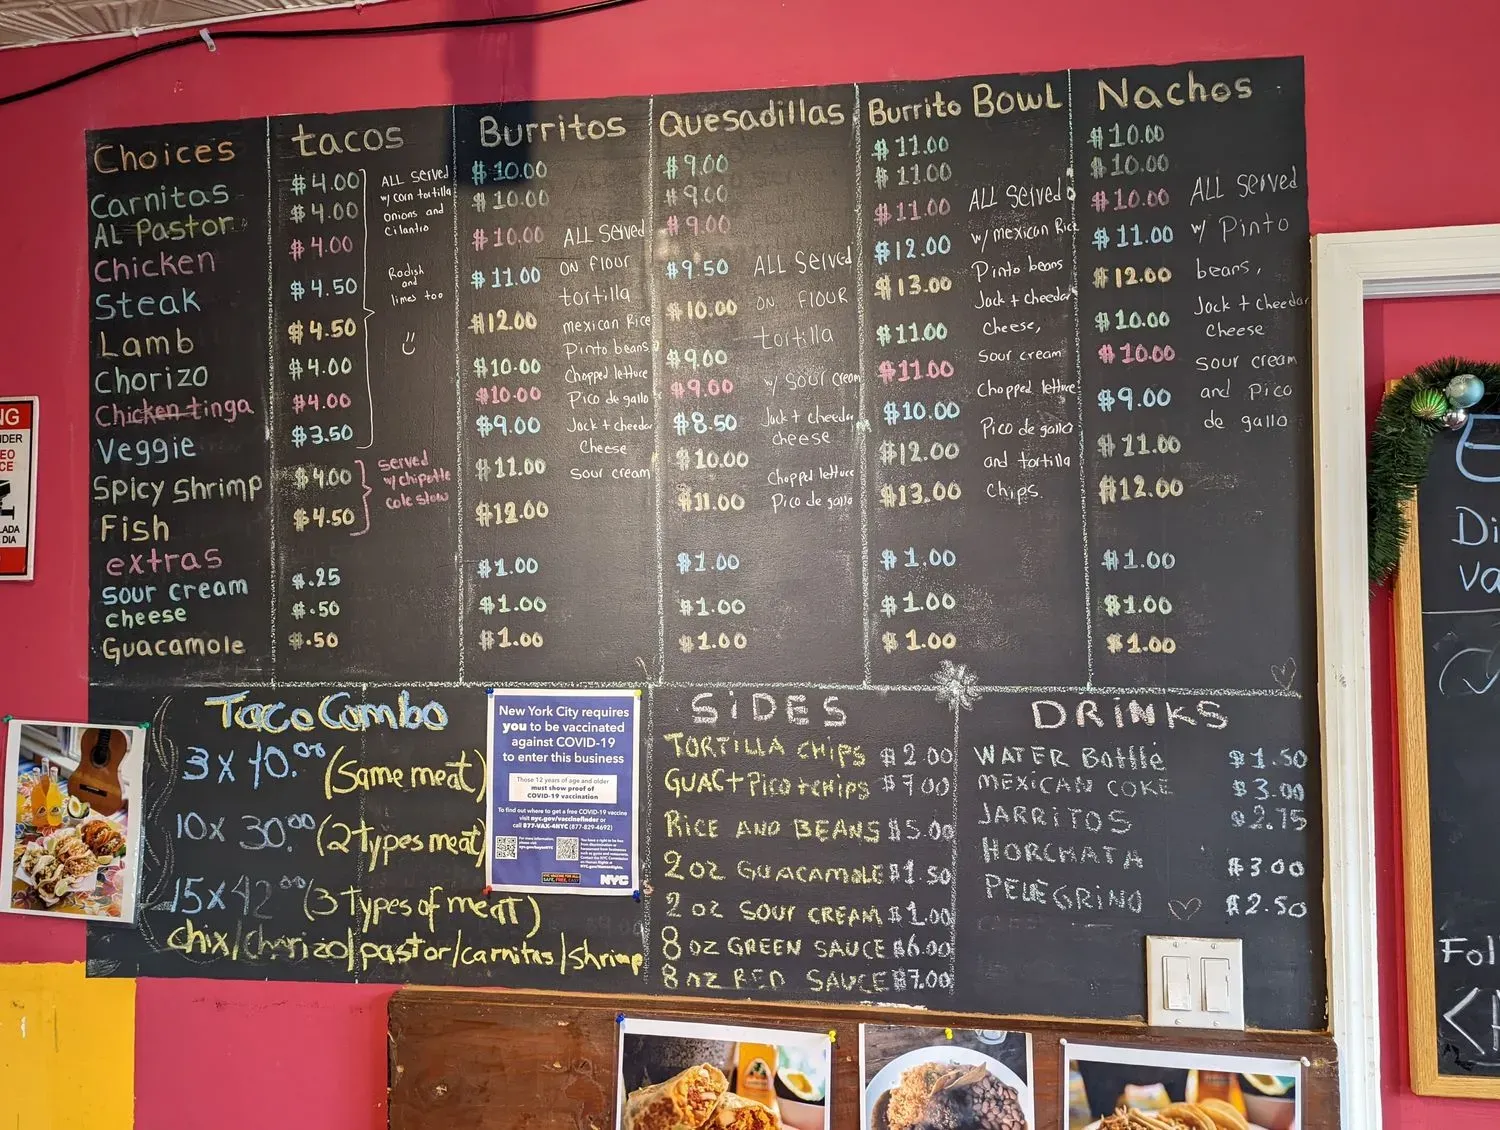 Choices
Carnitas
AL Pastor
Chicken
Steak
Lamb
Chorizo
Chicken tinga
Veggie
Spicy Shrimp
Fish
extras
sour cream
cheese
Guacamole
tacos
$4.00
$4.00
$4.00
$4.50
$4.50
$4.00
$4.00
$3.50
$4.00
$4.50
$.25
$.50
$.50
ALL Served
w/ corn tortilla
onions and
Cilantro
Radish
and
limes too
served
w/ chipotle
cole slaw
Burritos
$10.00
$10.00
$10.00
$11.00
$12.00
$10.00
$10.00
$9.00
$11.00
$12.00
$1.00
$1.00
$1.00
ALL Served
ON flour
tortilla
mexican Rice
Pinto beans
Chopped lettuce
Pico de gallo
Jack + cheedar
Cheese
Sour cream
Quesadillas
$9.00
$9.00
$9.00
$9.50
$10.00
$9.00
$9.00
$8.50
$10.00
$11.00
$1.00
$1.00
$1.00
ALL Served
ON FLOUR
tortilla
w/ sour cream
Jack + cheedar
cheese
Chopped lettuce
Pico de gallo
Burrito BOWL
$11.00
$11.00
$11.00
$12.00
$13.00
$11.00
$11.00
$10.00
$12.00
$13.00
$1.00
$1.00
$1.00
ALL Served
w/ mexican Rice
Pinto beans
Jack + cheedar
Cheese,
Sour cream
Chopped lettuce
Pico de gallo
and tortilla
Chips.
Nachos
$10.00
$10.00
$10.00
$11.00
$12.00
$10.00
$10.00
$9.00
$11.00
$12.00
$1.00
$1.00
$1.00
ALL Served
w/ Pinto
beans,
Jack + cheedar
Cheese
sour cream
and Pico
de gallo
Taco Combo
3 x 10.00 (Same meat)
10x 30.00 (2 types meat)
15x42.00 (3 Types of meat)
chix/chorizo/pastor/carnitas/shrimp
New York City requires
you to be vaccinated
against COVID-19
to enter this business
Those 12 years of age and older
must show proof of
COVID-19 vaccination
To find out where to get a free COVID-19 vaccine
visit nyc.gov/vaccinefinder or
call 877-VAX-4NYC (877-829-4692)
NYC
SiDES
TORTILLA CHIPS $2.00
GUAC + Pico + chips $7.00
RICE AND BEANS $5.00
2 oz GUACAMOLE $1.50
2 oz SOUR CREAM $1.00
8 oz GREEN SAUCE $6.00
8 oz RED SAUCE $7.00
DRiNKS
WATER Bottle $1.50
MEXICAN COKE $3.00
JARRITOS $2.75
HORCHATA $3.00
PELEGRINO $2.50
NG
CE
LADA
DIA
Di
Va
Fol